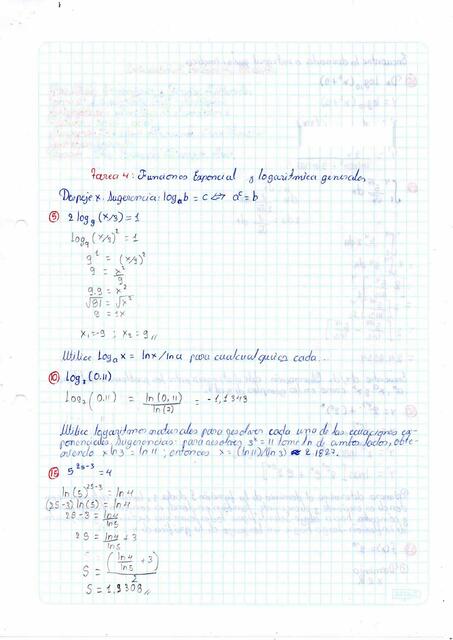 Tarea 4: Funciones Exponcial y logarítmica generales
Despeje x. Sugerencia: log_a b = c ⇔ a^c = b
⑤ 2 log_9 (x/3) = 1
log_9 (x/3)^2 = 1
9^1 = (x/3)^2
9 = x^2/9
9.9 = x^2
√81 = √x^2
9 = ±x
x_1 = -9 ; x_2 = 9 //
Utilice log_a x = ln x / ln a para cada...
⑩ log_7 (0.11)
log_7 (0.11) = ln(0,11)/ln(7) = -1,1343
Utilice logaritmos naturales para resolver cada una de las ecuaciones ex-
ponenciales. Sugerencias: para resolver 3^x = 11 tome ln de ambos lados, obte-
niendo x ln 3 = ln 11 ; entonces x = (ln 11)/(ln 3) ≈ 2.1827.
⑮ 5^{2S-3} = 4
ln(5)^{2S-3} = ln 4
(2S-3) ln(5) = ln 4
2S-3 = ln 4/ln 5
2S = ln 4/ln 5 + 3
S = (ln 4/ln 5 + 3)/2
S = 1,9308 //